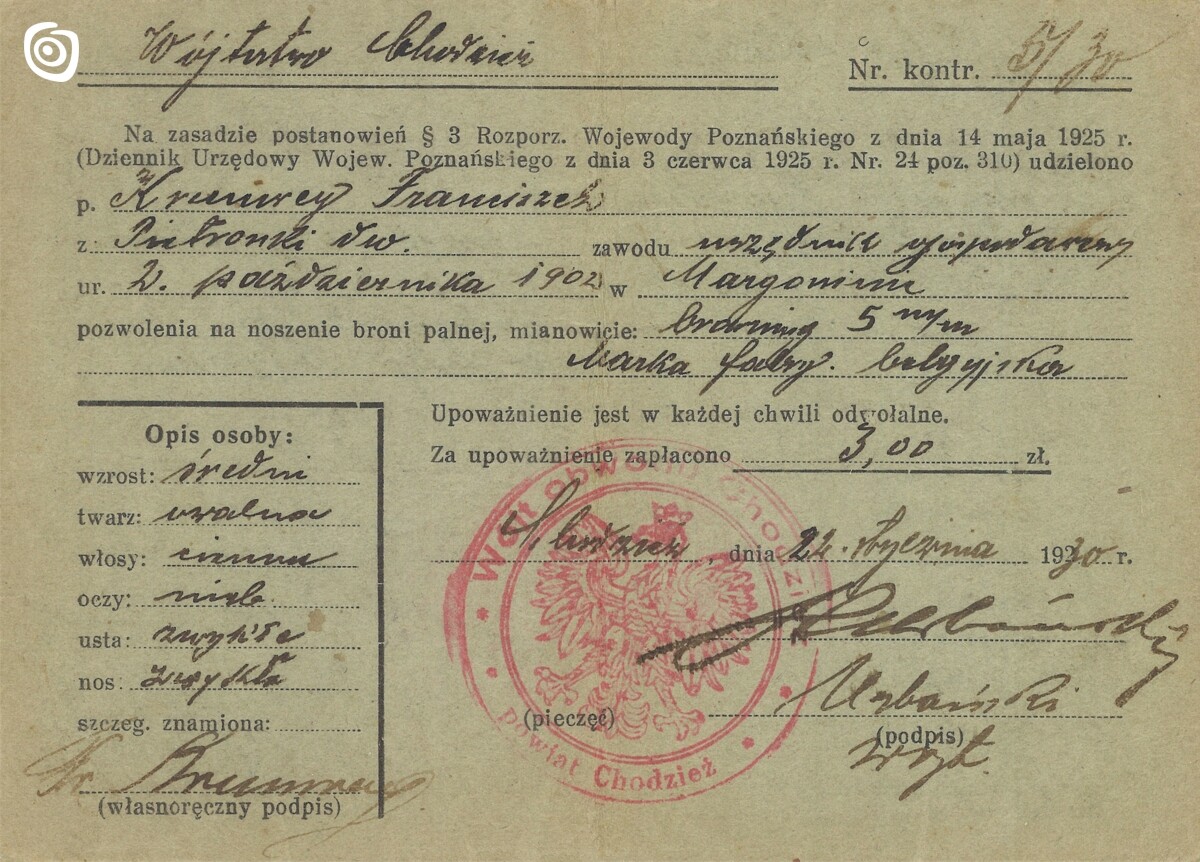 Wójtstwo Chodzież
Nr. kontr. 5/30
Na zasadzie postanowień § 3 Rozporz. Wojewody Poznańskiego z dnia 14 maja 1925 r.
(Dziennik Urzędowy Wojew. Poznańskiego z dnia 3 czerwca 1925 r. Nr. 24 poz. 310) udzielono
p. Franciszek
z: Pietronki dw. zawodu urzędnik gospodarczy
ur. 2. października 1902 w Margoninie
pozwolenia na noszenie broni palnej, mianowicie: browning 5 m/m
Marka fabr. belgijska
Opis osoby:
wzrost: średni
twarz: owalna
włosy: ciemne
oczy: nieb.
usta: zwykłe
nos: zwykła
szczeg. znamiona:
(własnoręczny podpis)
Upoważnienie jest w każdej chwili odwołalne.
Za upoważnienie zapłacono 3,00 zł.
Chodzież, dnia 22. stycznia 1930 r.
Urbański
Urbański
(pieczęć)
(podpis)
wójt.
Wójt obwodu Chodzież
powiat Chodzież